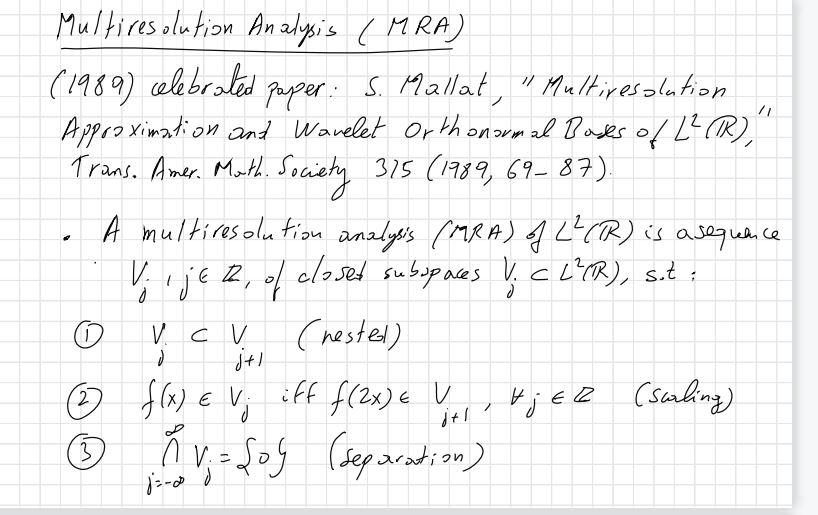 Multiresolution Analysis (MRA)
(1989) celebrated paper: S. Mallat, "Multiresolution
Approximation and Wavelet Orthonormal Bases of L²(ℝ),"
Trans. Amer. Math. Society 315 (1989, 69-87).
• A multiresolution analysis (MRA) of L²(ℝ) is a sequence
V_j, j ∈ ℤ, of closed subspaces V_j ⊂ L²(ℝ), s.t:
① V_j ⊂ V_{j+1} (nested)
② f(x) ∈ V_j iff f(2x) ∈ V_{j+1}, ∀j ∈ ℤ (scaling)
③ ∩_{j=-∞}^{∞} V_j = {0} (separation)